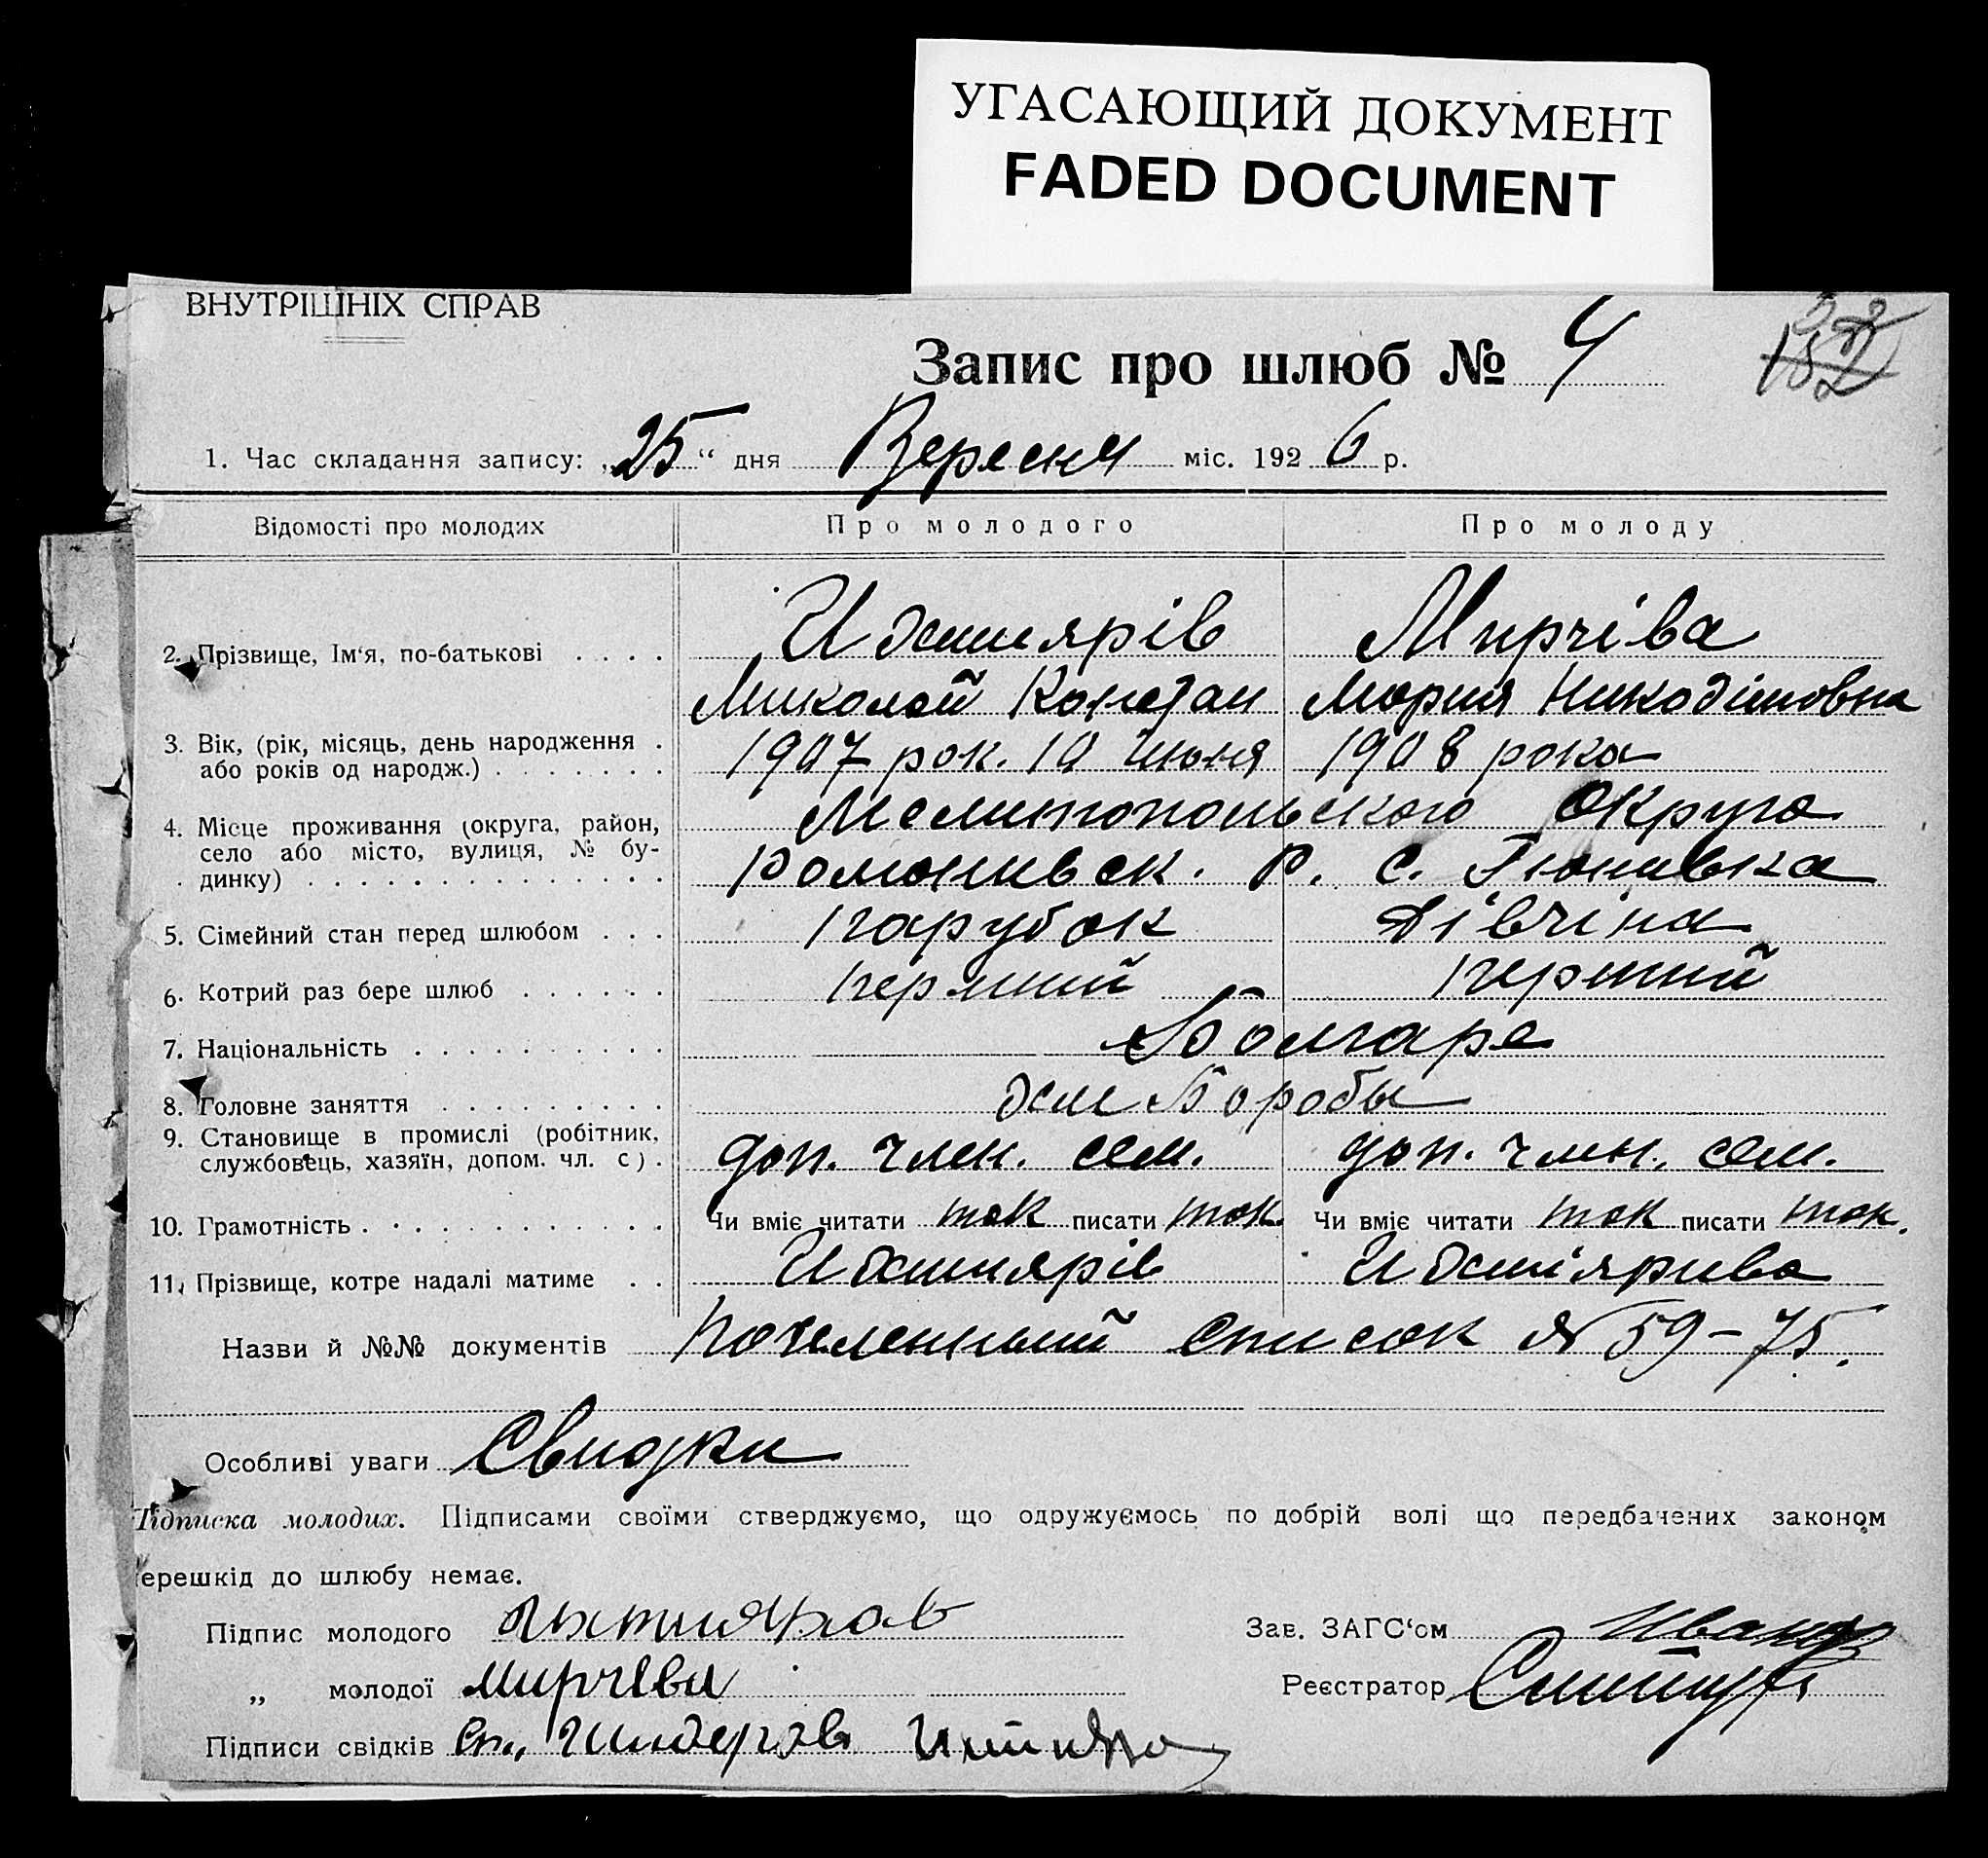 УГАСАЮЩИЙ ДОКУМЕНТ
FADED DOCUMENT
ВНУТРІШНІХ СПРАВ
Запис про шлюб № 4
1. Час складання запису: „25“ дня Вересня міс. 1926 р.
Відомості про молодих Про молодого Про молоду
2. Прізвище, Ім'я, по-батькові Мирчіва
Миколай Констан Мария Никодімовна
3. Вік, (рік, місяць, день народження 1907 рок. 10 Июня 1908 рока
або років од народж.)
4. Місце проживання (округа, район, Мелитопольского Округа
село або місто, вулиця, № бу- Романивск. Р. С. Гюнивка
динку)
5. Сімейний стан перед шлюбом парубок Дівчіна
6. Котрий раз бере шлюб перший перший
7. Національність Болгаре
8. Головне заняття хлiборобы
9. Становище в промислі (робітник, доп. член. сем. доп. член. сем.
службовець, хазяїн, допом. чл. с)
10. Грамотність Чи вміє читати так писати так. Чи вміє читати так писати так.
11. Прізвище, котре надалі матиме
Назви й №№ документів Посемейный список № 59-75.
Особливі уваги Свидки
Підписка молодих. Підписами своїми стверджуємо, що одружуємось по добрій волі що передбачених законом
перешкід до шлюбу немає.
Підпис молодого Зав. ЗАГС'ом
„ молодої Мирчева Реєстратор
Підписи свідків